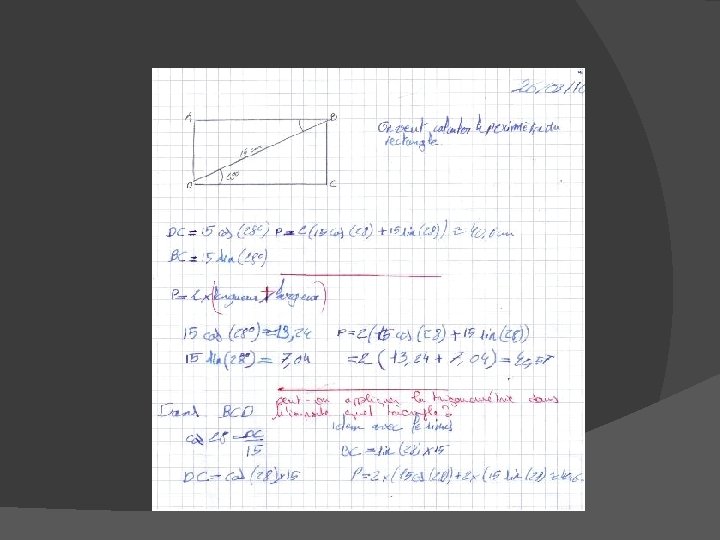 26/03/10
A B
On veut calculer le périmètre du
rectangle.
15 cm
28°
D C
DC = 15 cos(28°) P = 2(15 cos(28) + 15 sin(28)) ≈ 40,6 cm
BC = 15 sin(28°)
P = 2 × (longueur + largeur)
15 cos(28°) = 13,24 P = 2(15 cos(28) + 15 sin(28))
15 sin(28°) = 7,04 = 2(13,24 + 7,04) =
peut-on appliquer la trigonométrie dans
BCD n'importe quel triangle ?
idem avec le sinus
cos 28 = DC/15
BC = sin(28) × 15
DC = cos(28) × 15 P = 2×(15cos(28)+2×(15 sin(28) =